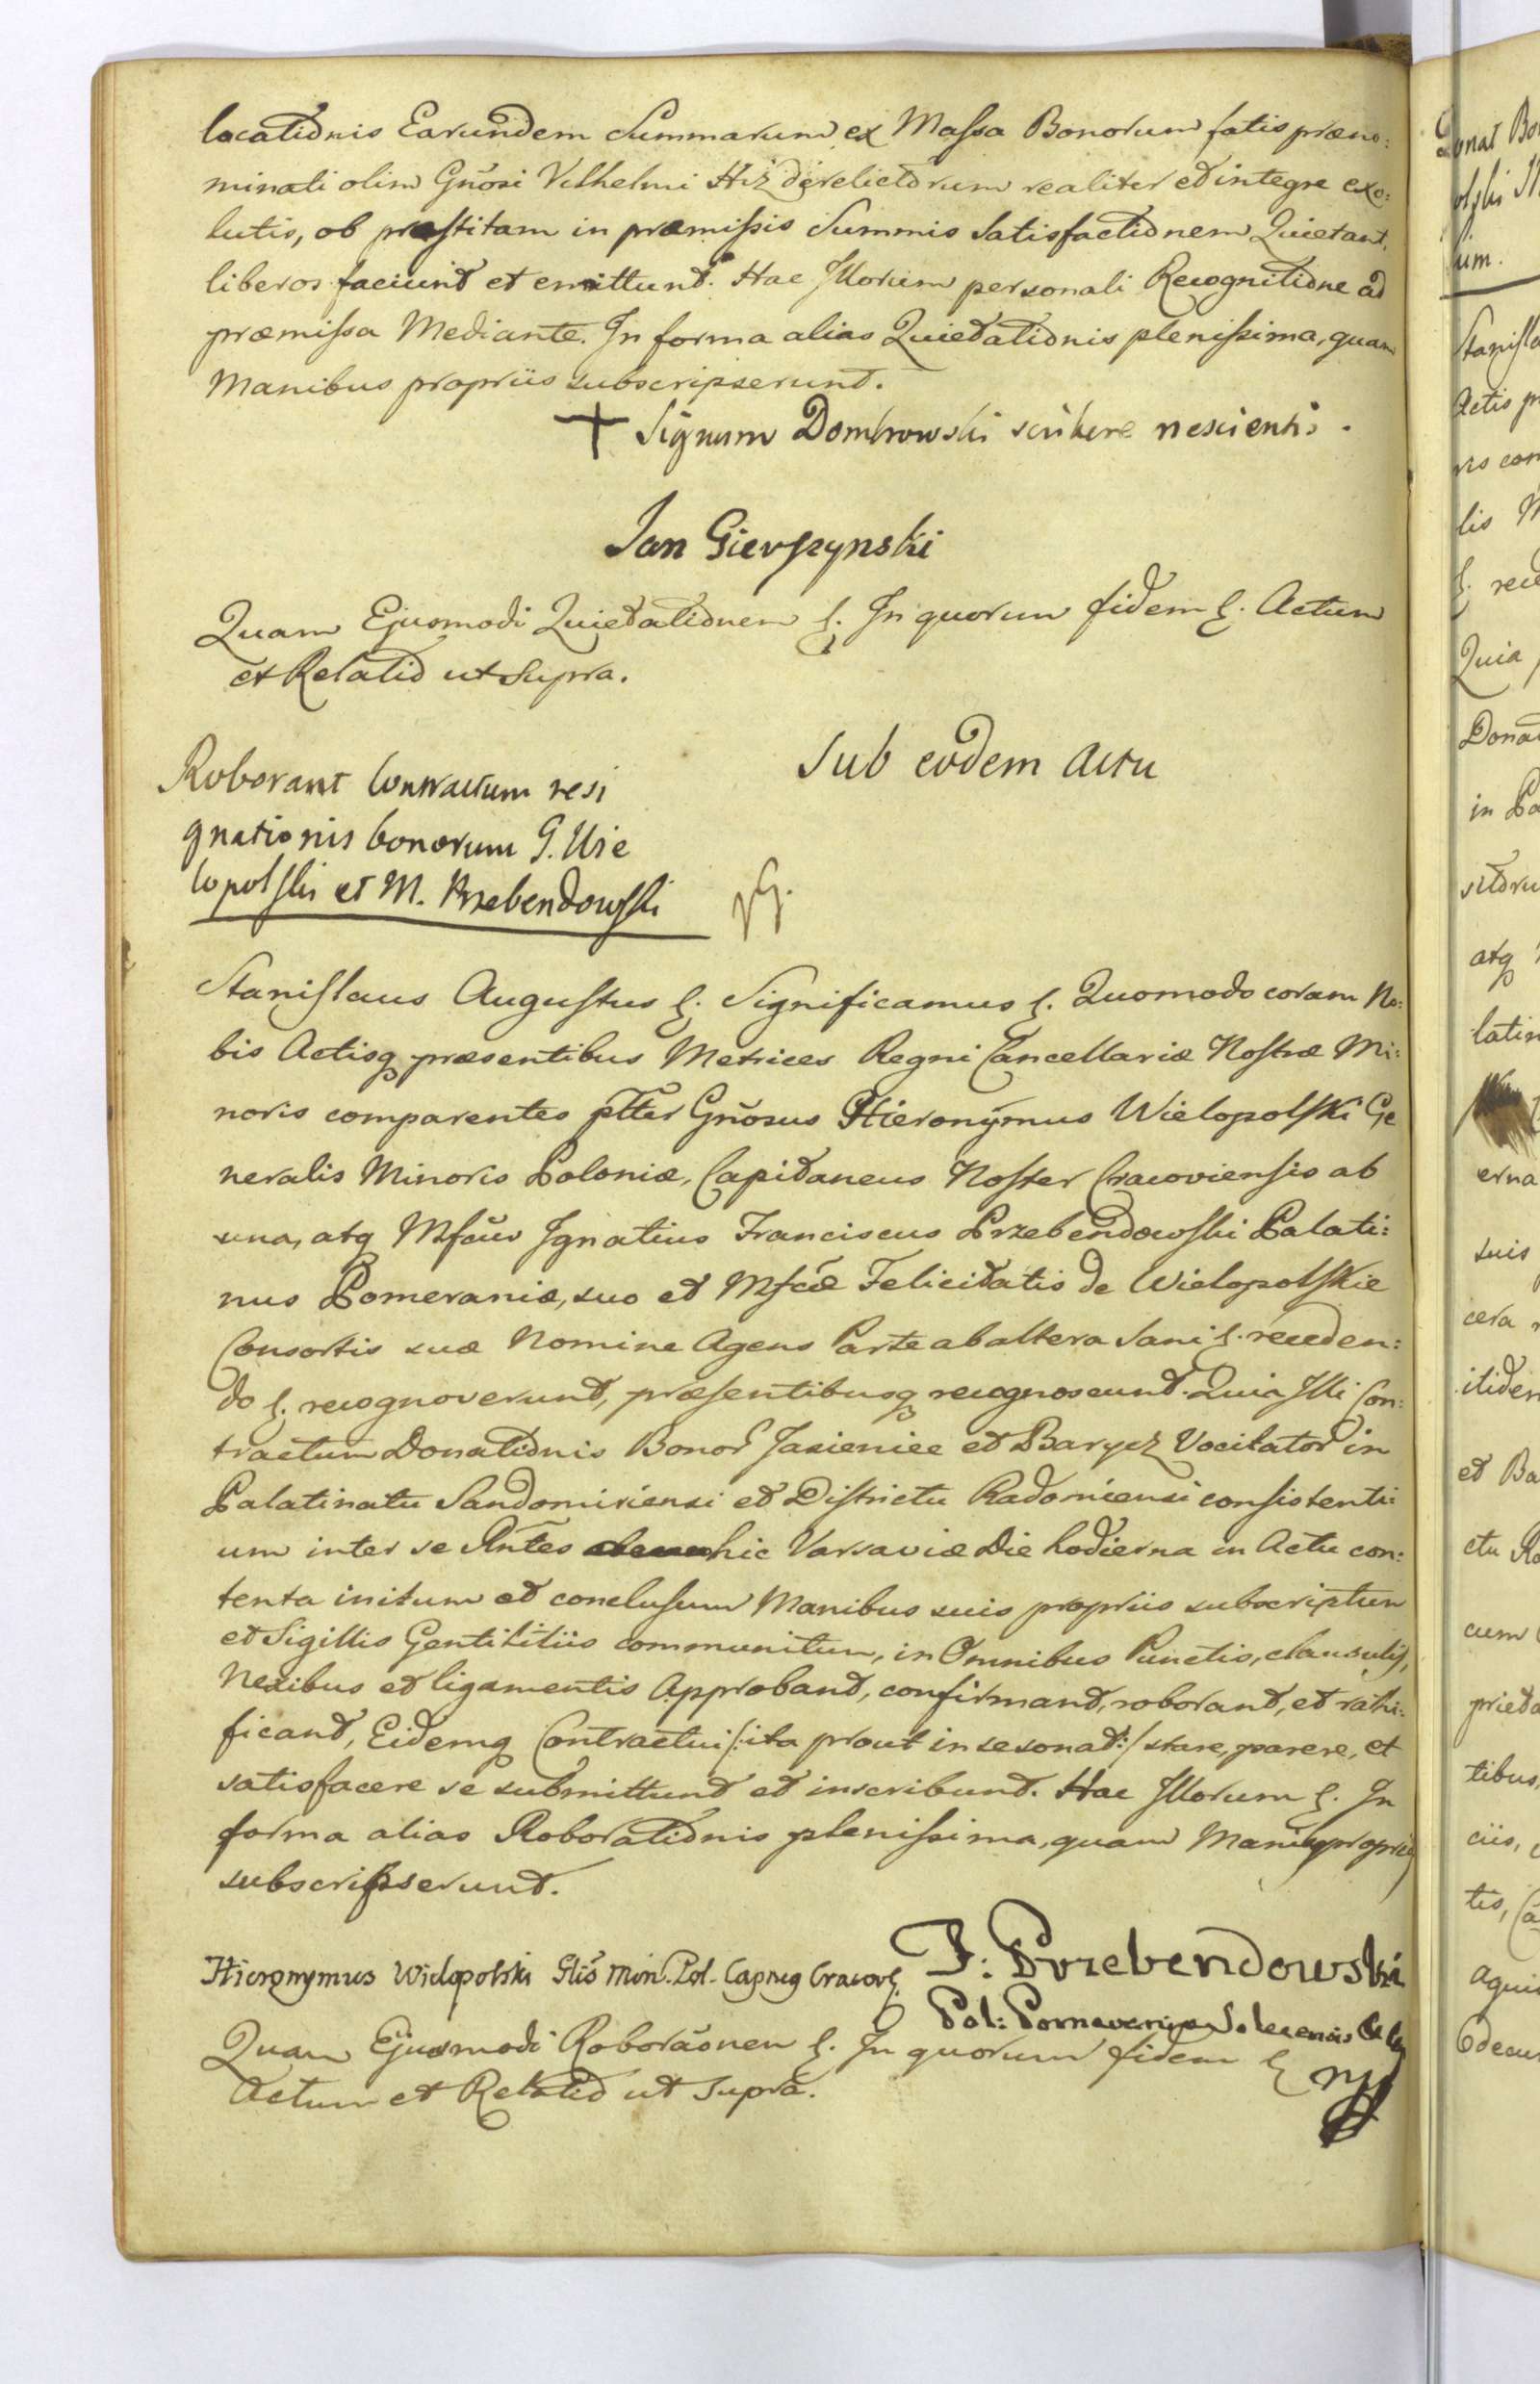 locationis Earundem Summarum ex Massa Bonorum fatis præno:
minati olim Gnõsi Vilhelmi Hiż derelictorum realiter et integre exo:
lutis, ob præstitam in præmissis Summis Satisfactionem Quietant,
liberos faciunt et emittunt. Hac Illorum personali Recognitione ad
præmissa Mediante. In forma alias Quietationis plenissima, quam
Manibus propriis subscripserunt.
+ Signum Dombrowski scribere nescientis.
Jan Gierszynski
Quam Ejusmodi Quietationem &. In quorum fidem &. Actum
et Relatio ut Supra.
Sub eodem Actu
Roborant Contractum resi
gnationis bonorum G. Wie
lopolski et M. Przebendowski
Stanislaus Augustus &. Significamus &. Quomodo coram No:
bis Actisq præsentibus Metrices Regni Cancellariæ Nostræ Mi:
noris comparentes pltter Gnõsus Hieronymus Wielopolski Ge
neralis Minoris Poloniæ, Capitaneus Noster Cracoviensis ab
una, atq Mfcus Ignatius Franciscus Przebendowski Palati:
nus Pomeraniæ, suo et Mfcæ Felicitatis de Wielopolskie
Consortis suæ Nomine Agens Parte ab altera Sani &. receden:
do &. recognoverunt, præsentibusq recognoscunt. Quia Illi Con:
tractum Donationis Bonor Jasieniec et Barycz Vocitator in
Palatinatu Sandomiriensi et Districtu Radomiensi consistenti:
um inter se Rntes hic Varsaviæ Die hodierna in Actu con:
tenta initum et conclusum Manibus suis propriis subscriptum
et Sigillis Gentilitiis communitum, in Omnibus Punctis, clausulis,
Nexibus et ligamentis Approbant, confirmant, roborant, et rati:
ficant, Eidemq Contractui /: ita prout in se sonat :/ stare, parere, et
satisfacere se submittunt et inscribunt. Hac Illorum &. In
forma alias Roborationis plenissima, quam Manibus propriis
subscripserunt.
Hieronymus Wielopolski Glis Min. Pol. Capneg Cracov
J: Przebendowski
Pal: Pomeraniæ Solecensis
Quam Ejusmodi Roboraõnem &. In quorum fidem &
Actum et Relatio ut Supra.